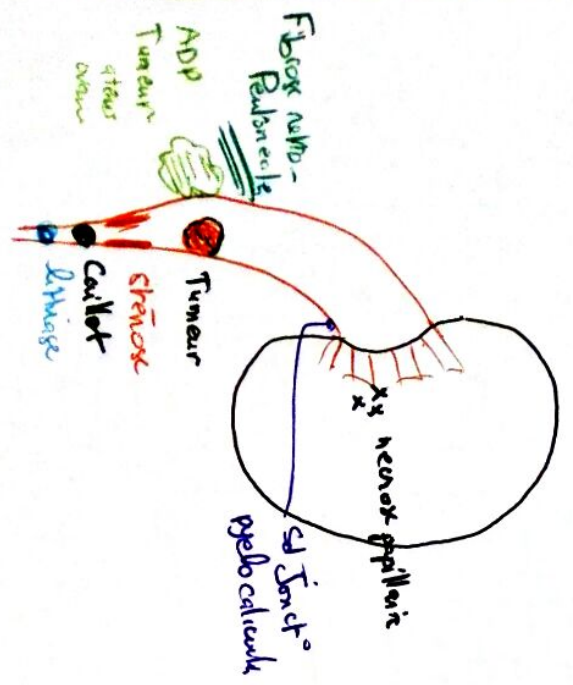 Fibrose retro-
Peritoneale
ADP
Tumeur
uterus
ovaire
Tumeur
sténose
Caillot
lithiase
necrose papillaire
Sd Jonct°
pyelo calicielle